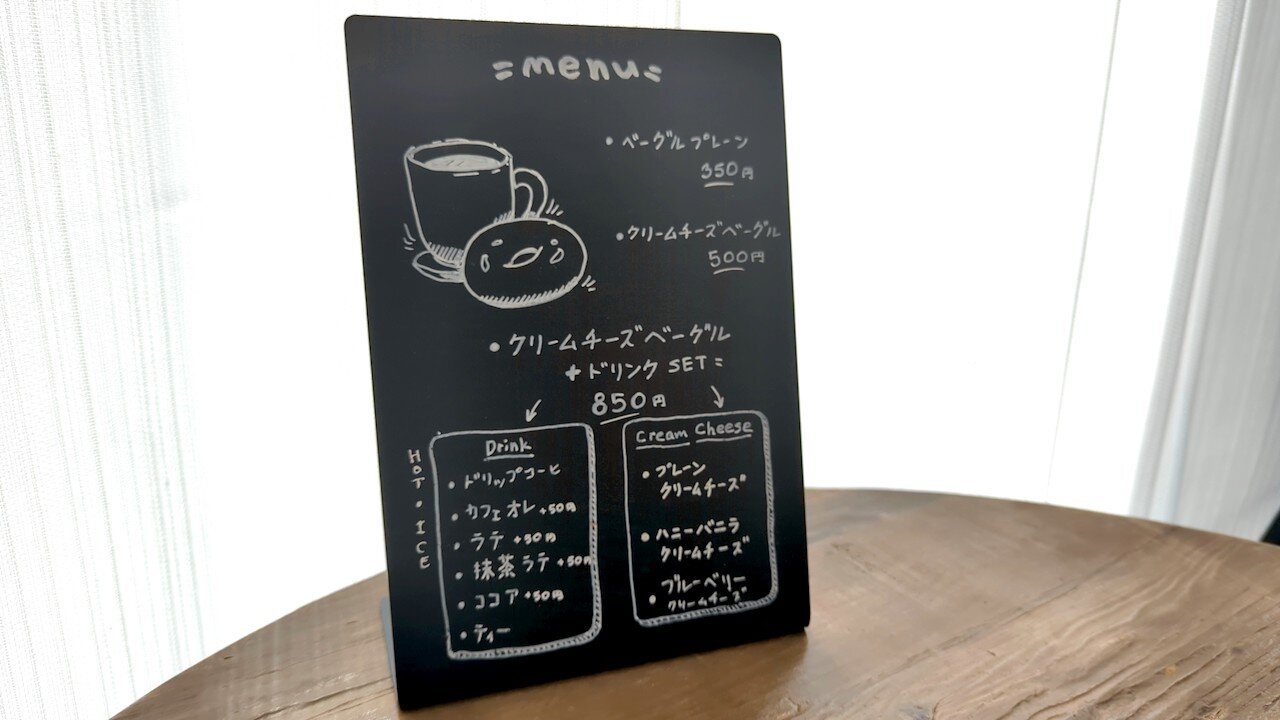 =menu=
・ベーグルプレーン
350円
・クリームチーズベーグル
500円
・クリームチーズベーグル
+ドリンク SET=
850円
Drink
HOT・ICE
・ドリップコーヒ
・カフェオレ+50円
・ラテ +50円
・抹茶ラテ +50円
・ココア+50円
・ティー
Cream Cheese
・プレーン
クリームチーズ
・ハニーバニラ
クリームチーズ
・ブルーベリー
クリームチーズ